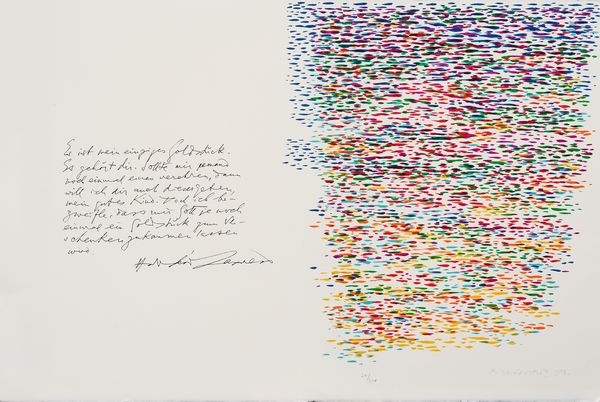 Es ist mein einziges Goldstück.
Es gehört dir. Sollte mir jemand
noch einmal eines verehren, dann
will ich dir auch dieses geben,
mein gutes Kind. Doch ich be-
zweifle, dass mir Gott je noch
einmal ein Goldstück zum Ve-
schenken zukommen lassen
wird